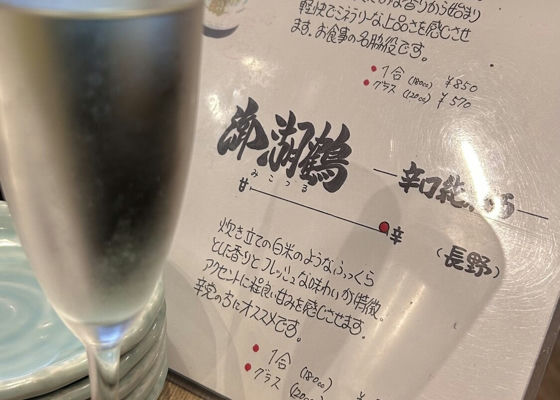 軽快でミネラリーな上品さを感じさせ
ます。お食事の名脇役です。
・1合(180cc) ¥850
・グラス(120cc) ¥570
御湖鶴
みこつる
―辛口純
甘 辛
(長野)
炊き立ての白米のようなふっくら
とした香りとフレッシュな味わいが特徴。
アクセントに程良い甘みを感じさせます。
辛党の方にオススメです。
・1合(180cc)
・グラス(120cc)